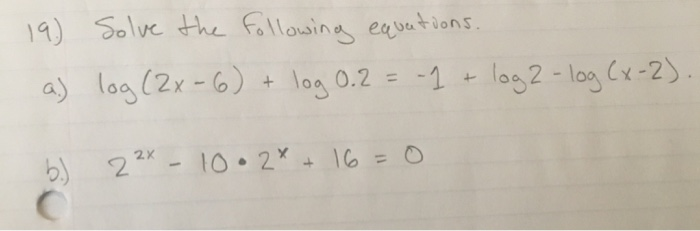 19.) Solve the following equations.
a.) log(2x-6) + log 0.2 = -1 + log 2 - log(x-2).
b.) 2^{2x} - 10 • 2^x + 16 = 0